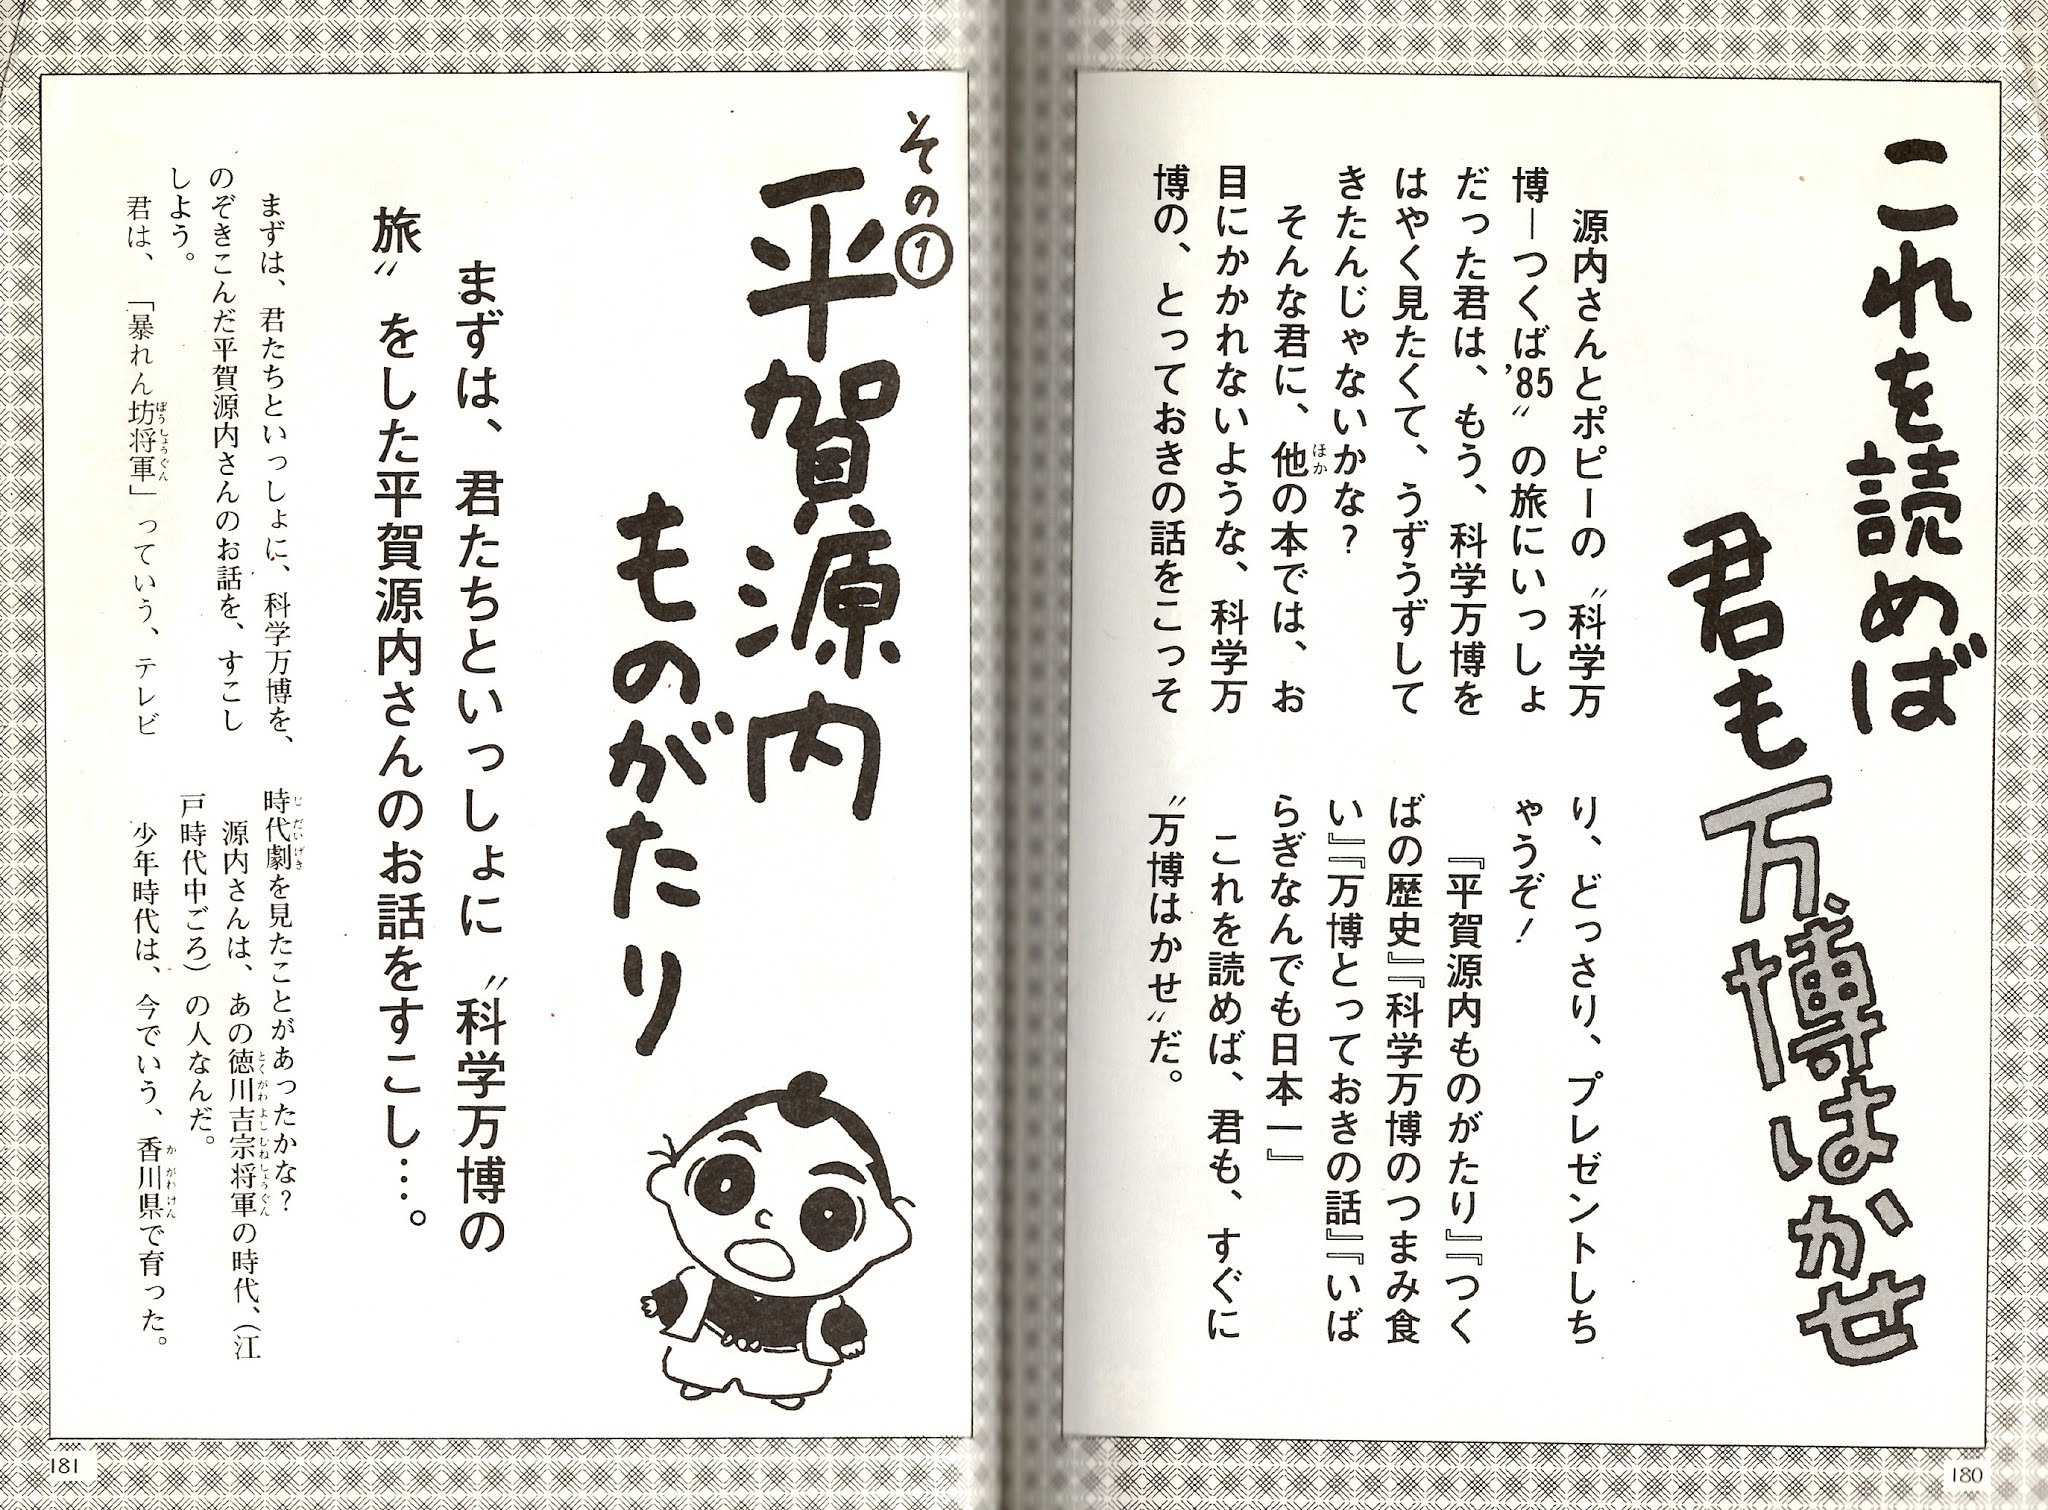 これを読めば
君も万博はかせ
源内さんとポピーの〝科学万
博―つくば'85〟の旅にいっしょ
だった君は、もう、科学万博を
はやく見たくて、うずうずして
きたんじゃないかな？
そんな君に、他の本では、お
ほか
目にかかれないような、科学万
博の、とっておきの話をこっそ
り、どっさり、プレゼントしち
ゃうぞ！
『平賀源内ものがたり』『つく
ばの歴史』『科学万博のつまみ食
い』『万博とっておきの話』『いば
らぎなんでも日本一』
これを読めば、君も、すぐに
〝万博はかせ〟だ。
180
その①
平賀源内
ものがたり
まずは、君たちといっしょに〝科学万博の
旅〟をした平賀源内さんのお話をすこし…。
まずは、君たちといっしょに、科学万博を、
のぞきこんだ平賀源内さんのお話を、すこし
しよう。
君は、「暴れん坊将軍」っていう、テレビ
ぼうしょうぐん
時代劇を見たことがあったかな？
じだいげき
源内さんは、あの徳川吉宗将軍の時代、（江
とくがわよしむねしょうぐん
戸時代中ごろ）の人なんだ。
少年時代は、今でいう、香川県で育った。
かがわけん
181